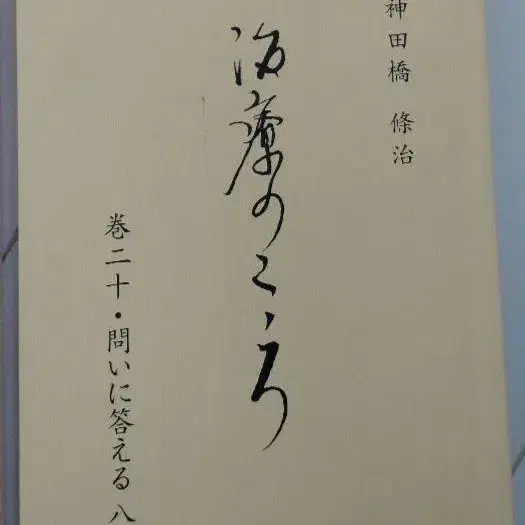 神田橋 條治
治療のこゝろ
巻二十・問いに答える 八